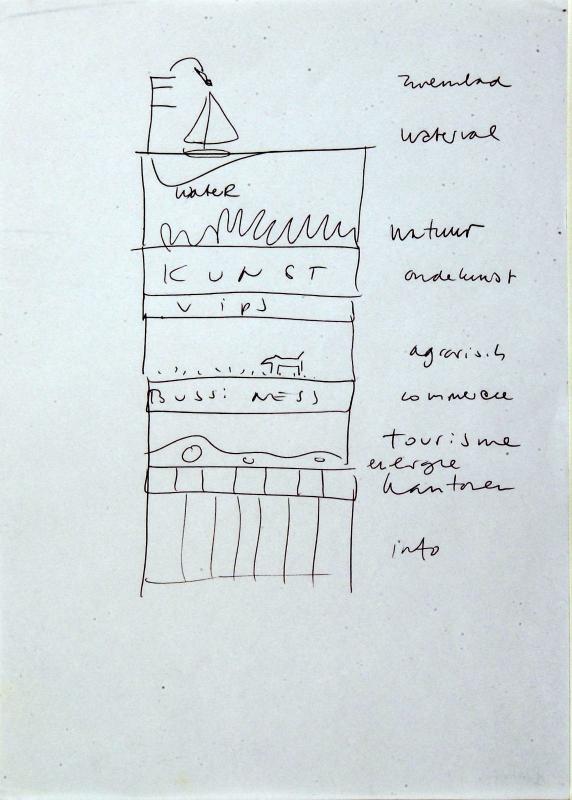 zwembad
waterval
WATER
natuur
KUNST
oude kunst
VIPS
agrarisch
BUSSINESS
commercie
tourisme
energie
kantoren
info